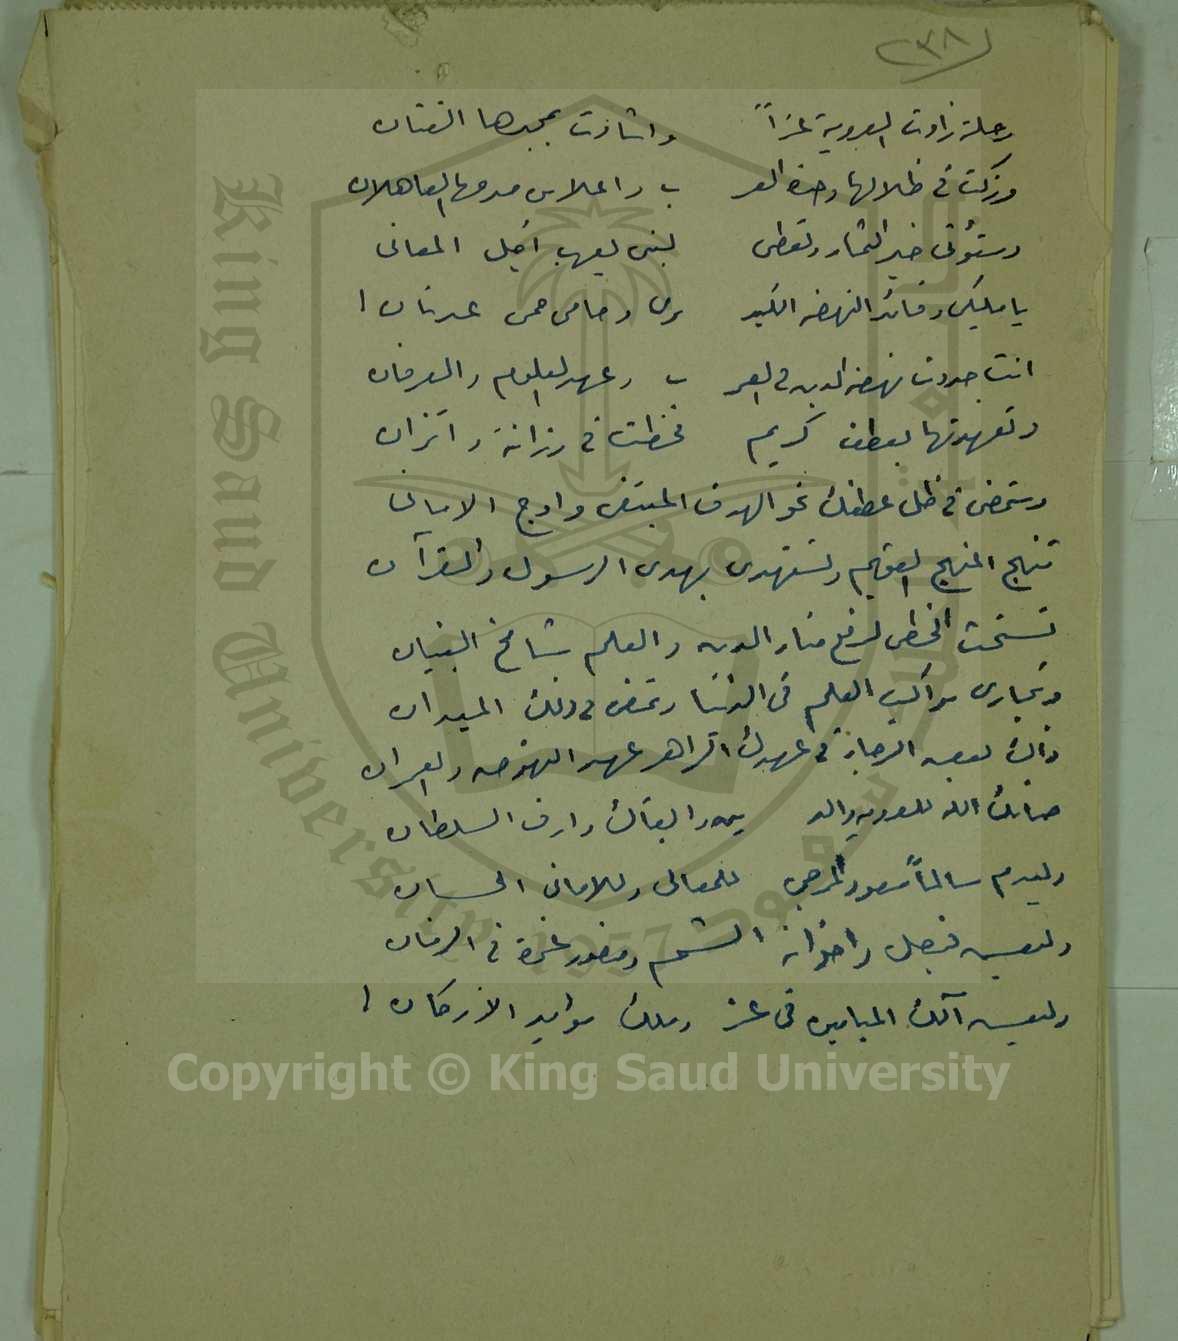 (٣٨)
رحلة زادت العروبة عزاً واشادت بمجدها الفتان
وزكت في ظلالها وحدة العر ب واعلاس العاهلان
وستؤتي خير الثمار وتعطي لبني يعرب أجل المعاني
يا مليكي وقائد النهضة الكبر ى وحامي حمى عدنان !
انت جددت نهضة الدين في العر ب وعهد العلوم والعرفان
وتعهدتها بعطف كريم فخطت في رزانة واتزان
وستمضي في ظل عطفك نحو الهدف المبتغى واوج الاماني
تنهج المنهج القويم وتستهدي بهدى الرسول والقرآن
تستحث الخطى لرفع منار الدين والعلم شامخ البنيان
وتجاري مواكب العلم في الدنيا وتمضي في ذلك الميدان
ذاك بعض الزاهر عهد النهوض والعمران
صانك الله للعروبة والد ين وابقاك وارف السلطان
وليدم سالماً سعود المرجى للمعالي وللاماني الحسان
وليعيش فيصل واخوانه الشم ومنصور غرة في الزمان
وليعيش آلك الميامين في عز وملك موايد الاركان !
King Saud University
1957
جامعة الملك سعود
Copyright © King Saud University